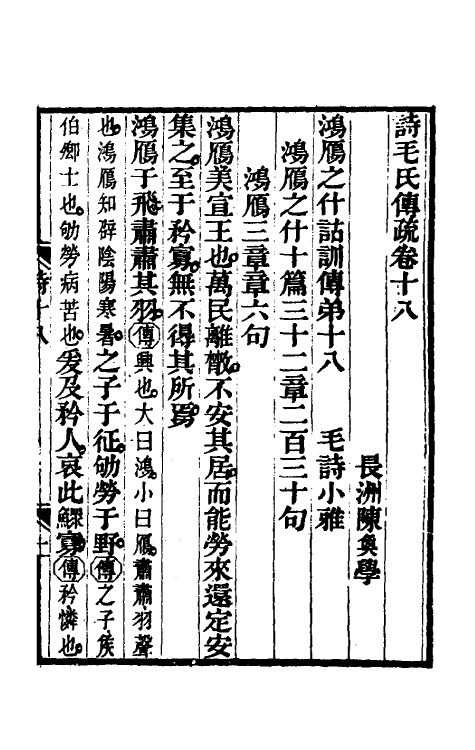 詩毛氏傳疏卷十八
長洲陳奐學
鴻鴈之什詁訓傳弟十八　毛詩小雅
鴻鴈之什十篇三十二章二百三十句
鴻鴈三章章六句
鴻鴈美宣王也萬民離㪚不安其居而能勞來還定安
集之至于矜寡無不得其所焉
鴻鴈于飛肅肅其羽傳興也大曰鴻小曰鴈肅肅羽聲
也鴻鴈知辟陰陽寒暑之子于征劬勞于野傳之子矦
伯鄉士也劬勞病苦也爰及矜人哀此鰥寡傳矜憐也
詩十八
一